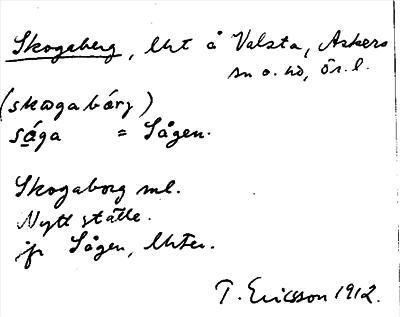 Skogaberg, lht å Valsta, Askers
sn o. hd, Ör. l.
(skɷgabárj)
sága = Sågen.
Skogaborg ml.
Nytt ställe.
jfr Sågen, lhter.
T. Ericsson 1912.